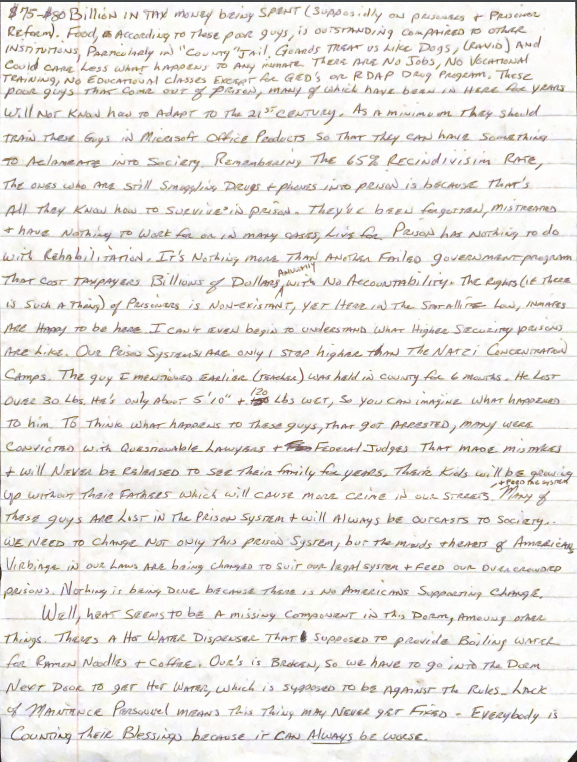 $75-$80 Billion in tax money being SPENT (supposidly on prisoners + Prisoner
Reform). Food, is According to these poor guys, is OUTSTANDING compaired to other
INSTITUTIONS, Particulary in "County" Jail. Guards treat us like Dogs, (RAVID) And
Could care Less what happens to Any inmate. There Are No Jobs, No Vocational
TRAINING, No Educational Classes Except for GED's or RDAP Drug Program. These
poor guys that come out of prison, many of which have been in here for years
Will Not know how to Adapt to the 21st Century. As a minimum they should
train these Guys in Microsoft Office Products so that they can have something
to Aclamrate into Society. Remembering the 65% Recindivisim Rate,
the ones who are still Smuggling Drugs + phones into prison is because that's
All they know how to survive in prison. They've been forgotten, mistreated
+ have nothing to work for or in many cases, Live for. Prison has Nothing to do
with Rehabilitation. It's Nothing more than Another Failed government program
that cost taxpayers Billions of Dollars, Annually with No Accountability. The Rights (if there
is such a thing) of Prisoners is Non-existant, yet Here in the Satallite Low, inmates
Are Happy to be here. I can't even begin to understand what Higher Security prisons
Are Like. Our Prison Systems are only 1 step higher than the Natzi Concentration
Camps. The guy I mentioned earlier (teacher) was held in county for 6 months. He Lost
over 30 Lbs. He's only About 5'10" + 120 Lbs wet, so you can imagine what happened
to him. To Think what happens to these guys, that got Arrested, many were
Convicted with Questionable Lawyers + Federal Judges that made mistakes
+ will Never be released to see their family for years. Their Kids will be growing
up without their Fathers which will cause more crime in our streets. + feed the system Many of
these guys are Lost in the Prison System + will Always be outcasts to Society.
We need to Change not only this prison System, but the minds + hearts of Americans
Virbiage in our Laws are being changed to suit our legal system + Feed our overcrowded
prisons. Nothing is being Done because there is no Americans Supporting Change.
Well, heat seems to be a missing component in this Dorm, Amoung other
things. Theres a Hot Water Dispenser that supposed to provide Boiling water
for Ramon Noodles + Coffee. Our's is Broken, so we have to go into the Dorm
Next Door to get Hot Water, which is supposed to be against the Rules. Lack
of Maintence Personnel means this thing may never get Fixed - Everybody is
Counting their Blessings because it can Always be worse.